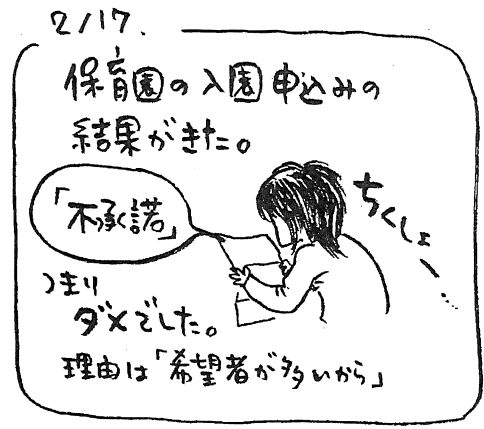 2/17.
保育園の入園申込みの
結果がきた。
「不承諾」
ちくしょー...
つまり
ダメでした。
理由は「希望者が多いから」